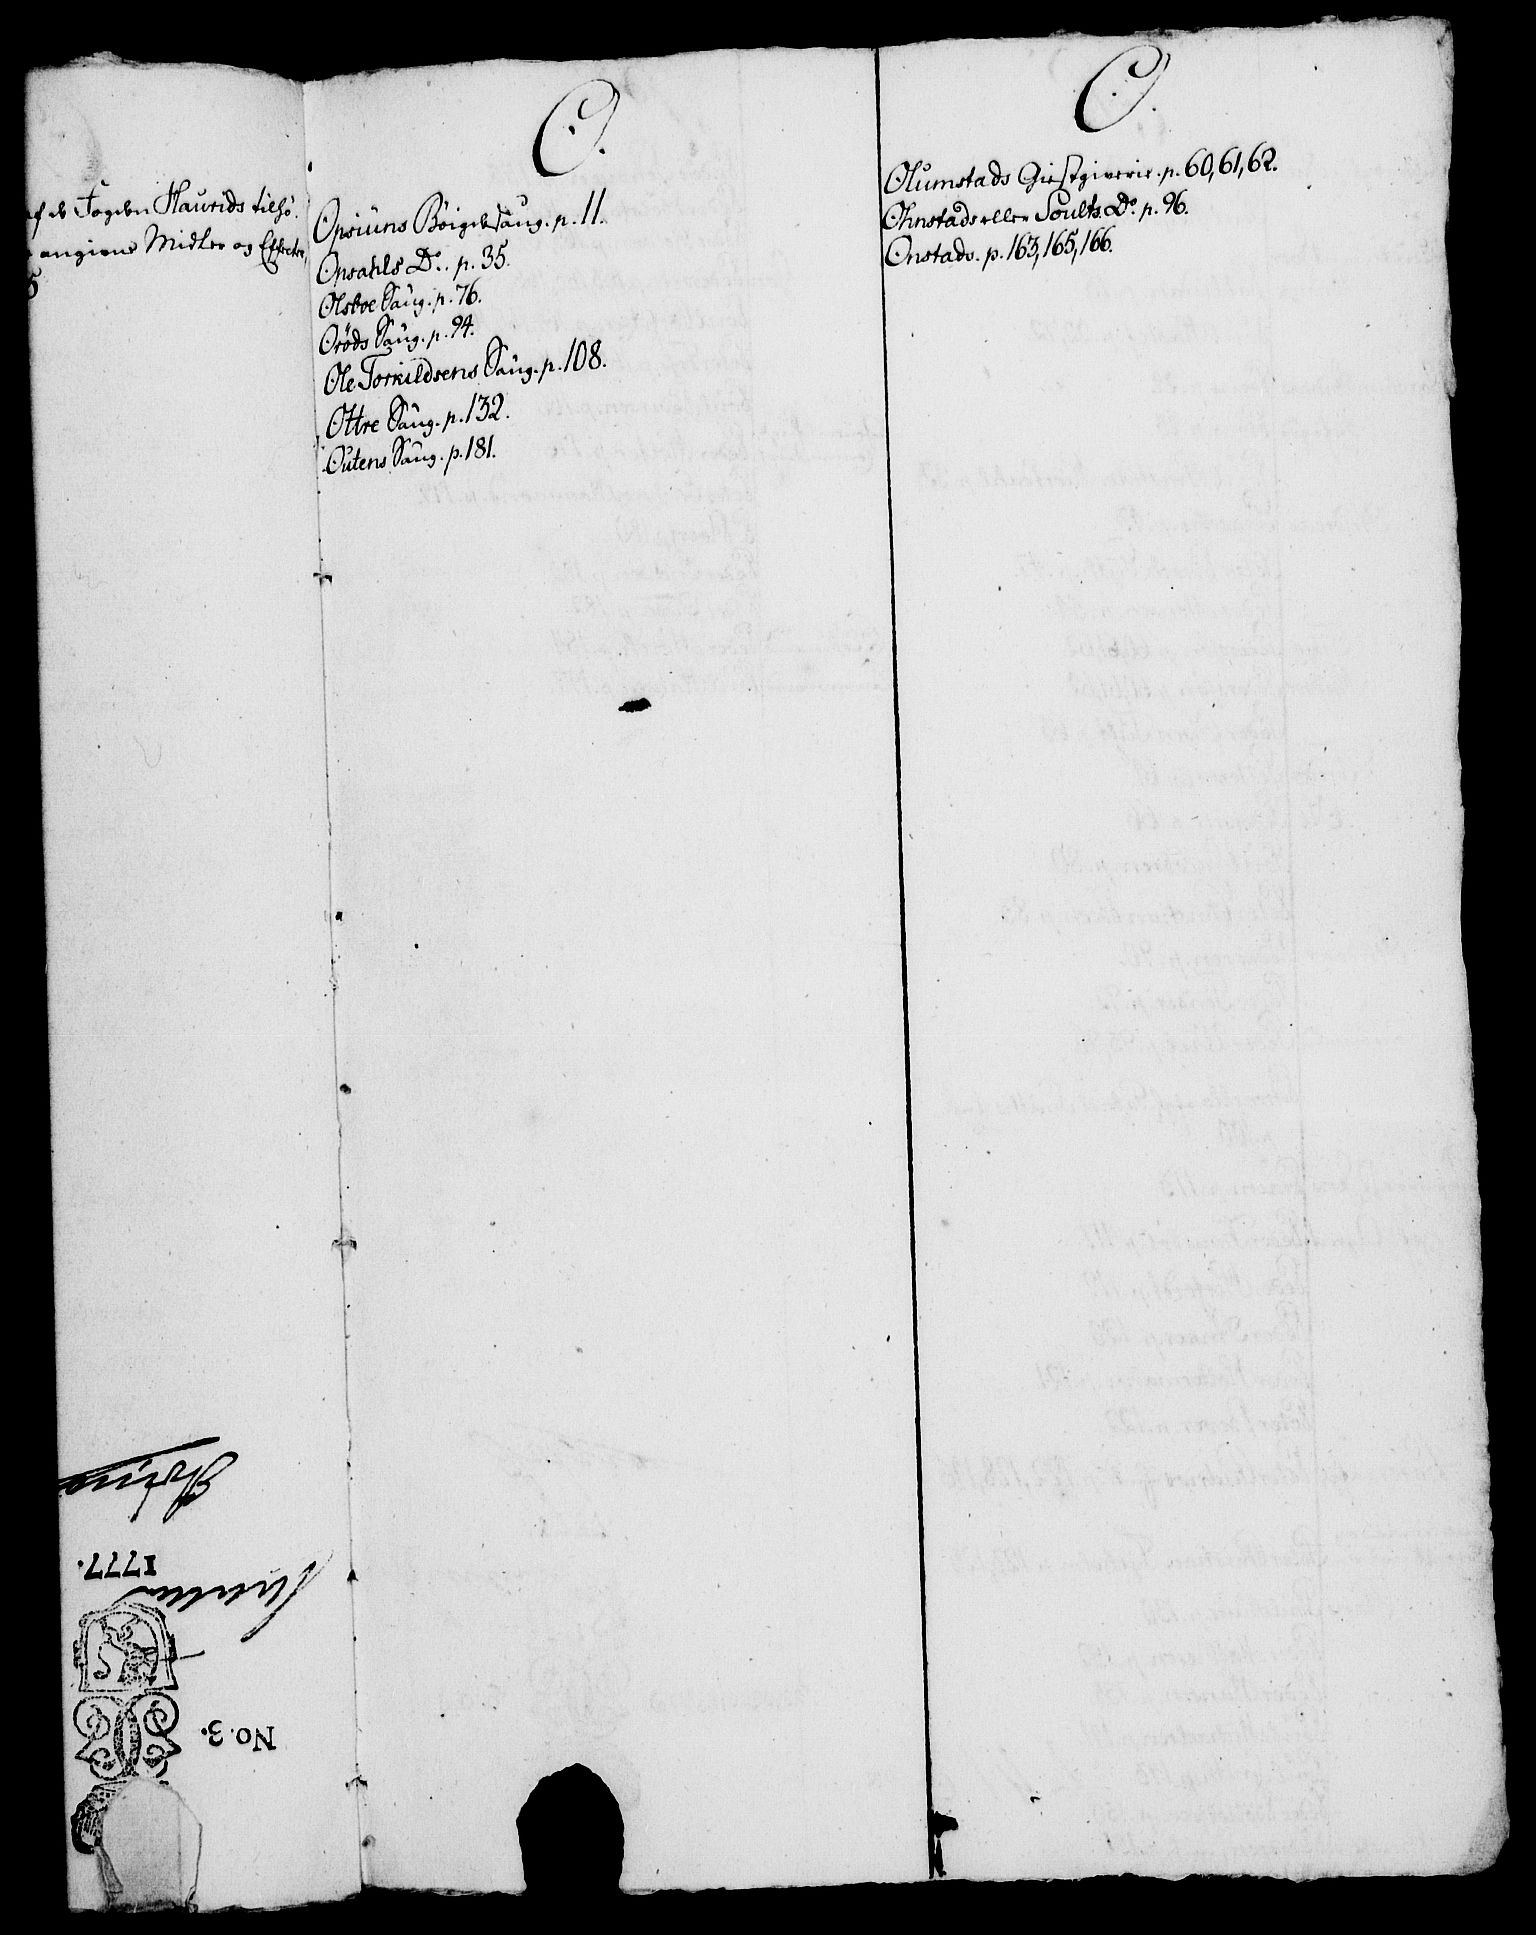 af de Fogden Haurids tilhö.
angivne Midler og Effecter,
5
O.
Opsiüns Böigde Saug. p. 11.
Opsahls Do. p. 35.
Olsboe Saug. p. 76.
Oröds Saug. p. 94.
Ole Torkildsens Saug. p. 108.
Ottre Saug. p. 132.
Outens Saug. p. 181.
O.
Olumstads Giestgiverie. p. 60, 61, 62.
Ohnstads eller Soults Do p. 96.
Onstads. p. 163, 165, 166.
1777.
No. 3.